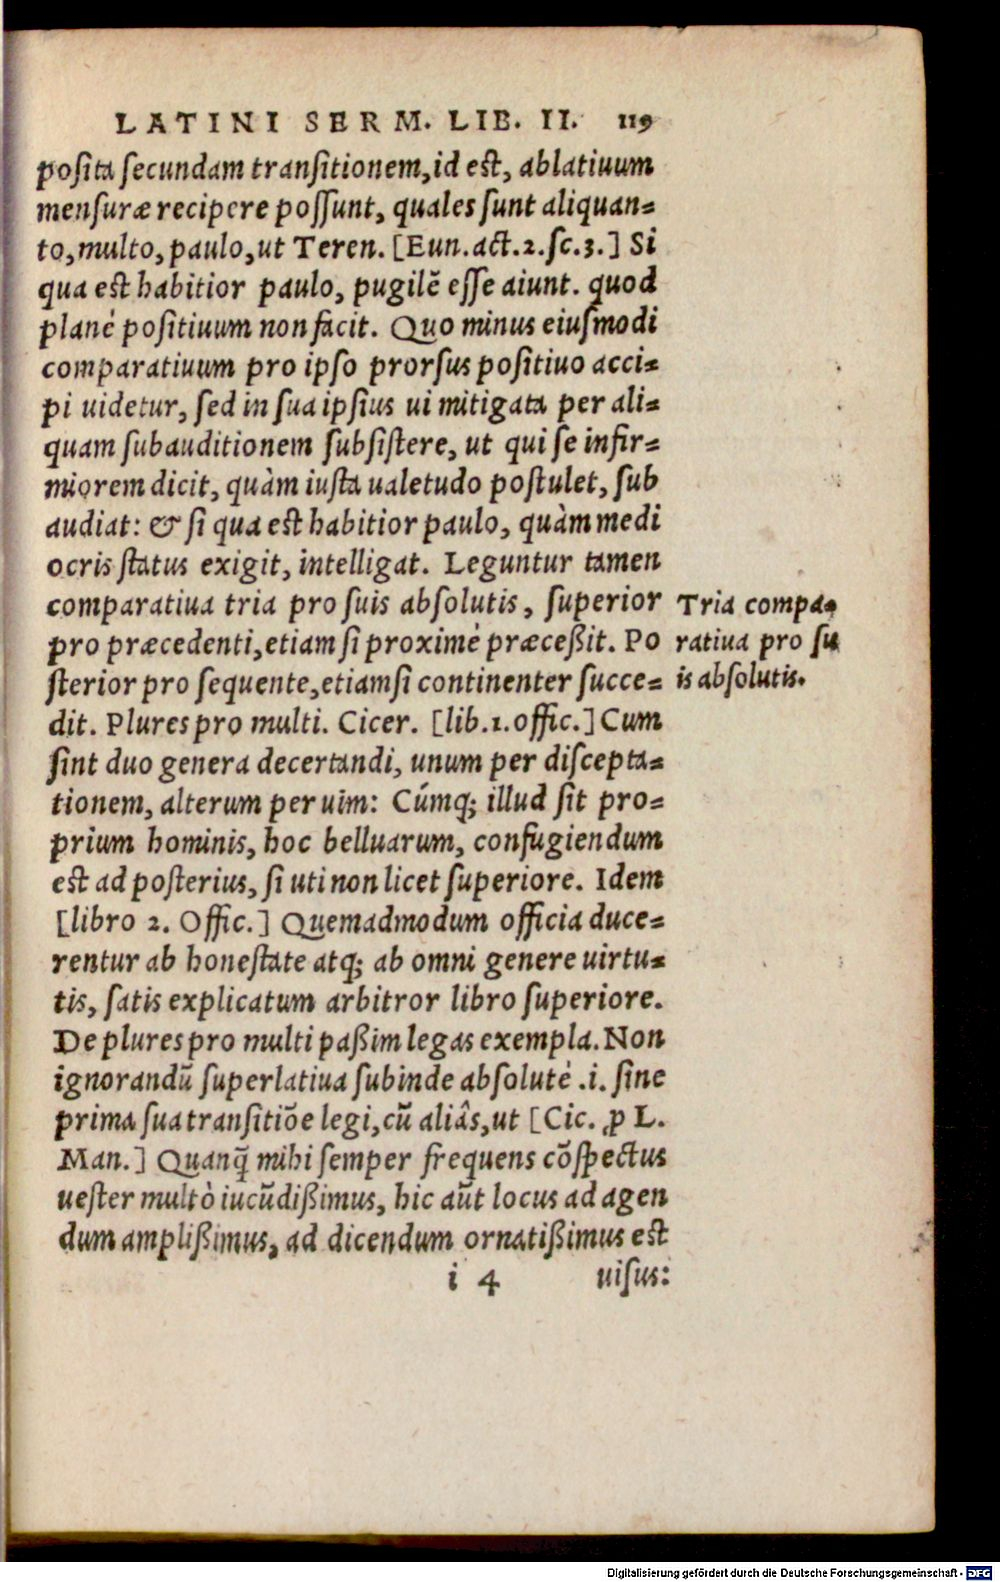 LATINI SERM. LIB. II. 119
posita secundam transitionem, id est, ablatiuum
mensuræ recipere possunt, quales sunt aliquan=
to, multo, paulo, ut Teren. [Eun. act. 2. sc. 3.] Si
qua est habitior paulo, pugilē esse aiunt. quod
plané positiuum non facit. Quo minus eiusmodi
comparatiuum pro ipso prorsus positiuo acci=
pi uidetur, sed in sua ipsius ui mitigata per ali=
quam subauditionem subsistere, ut qui se infir=
miorem dicit, quàm iusta ualetudo postulet, sub
audiat: & si qua est habitior paulo, quàm medi
ocris status exigit, intelligat. Leguntur tamen
comparatiua tria pro suis absolutis, superior
pro præcedenti, etiam si proximé præceßit. Po
sterior pro sequente, etiamsi continenter succe=
dit. Plures pro multi. Cicer. [lib. 1. offic.] Cum
sint duo genera decertandi, unum per discepta=
tionem, alterum per uim: Cúmq; illud sit pro=
prium hominis, hoc belluarum, confugiendum
est ad posterius, si uti non licet superiore. Idem
[libro 2. Offic.] Quemadmodum officia duce=
rentur ab honestate atq; ab omni genere uirtu=
tis, satis explicatum arbitror libro superiore.
De plures pro multi paßim legas exempla. Non
ignorandū superlatiua subinde absoluté .i. sine
prima sua transitiōe legi, cū aliâs, ut [Cic. ꝓ L.
Man.] Quanq̃ mihi semper frequens cōspectus
uester multò iucūdißimus, hic aūt locus ad agen
dum amplißimus, ad dicendum ornatißimus est
i 4 uisus:
Tria compa=
ratiua pro su
is absolutis.
Digitalisierung gefördert durch die Deutsche Forschungsgemeinschaft - DFG